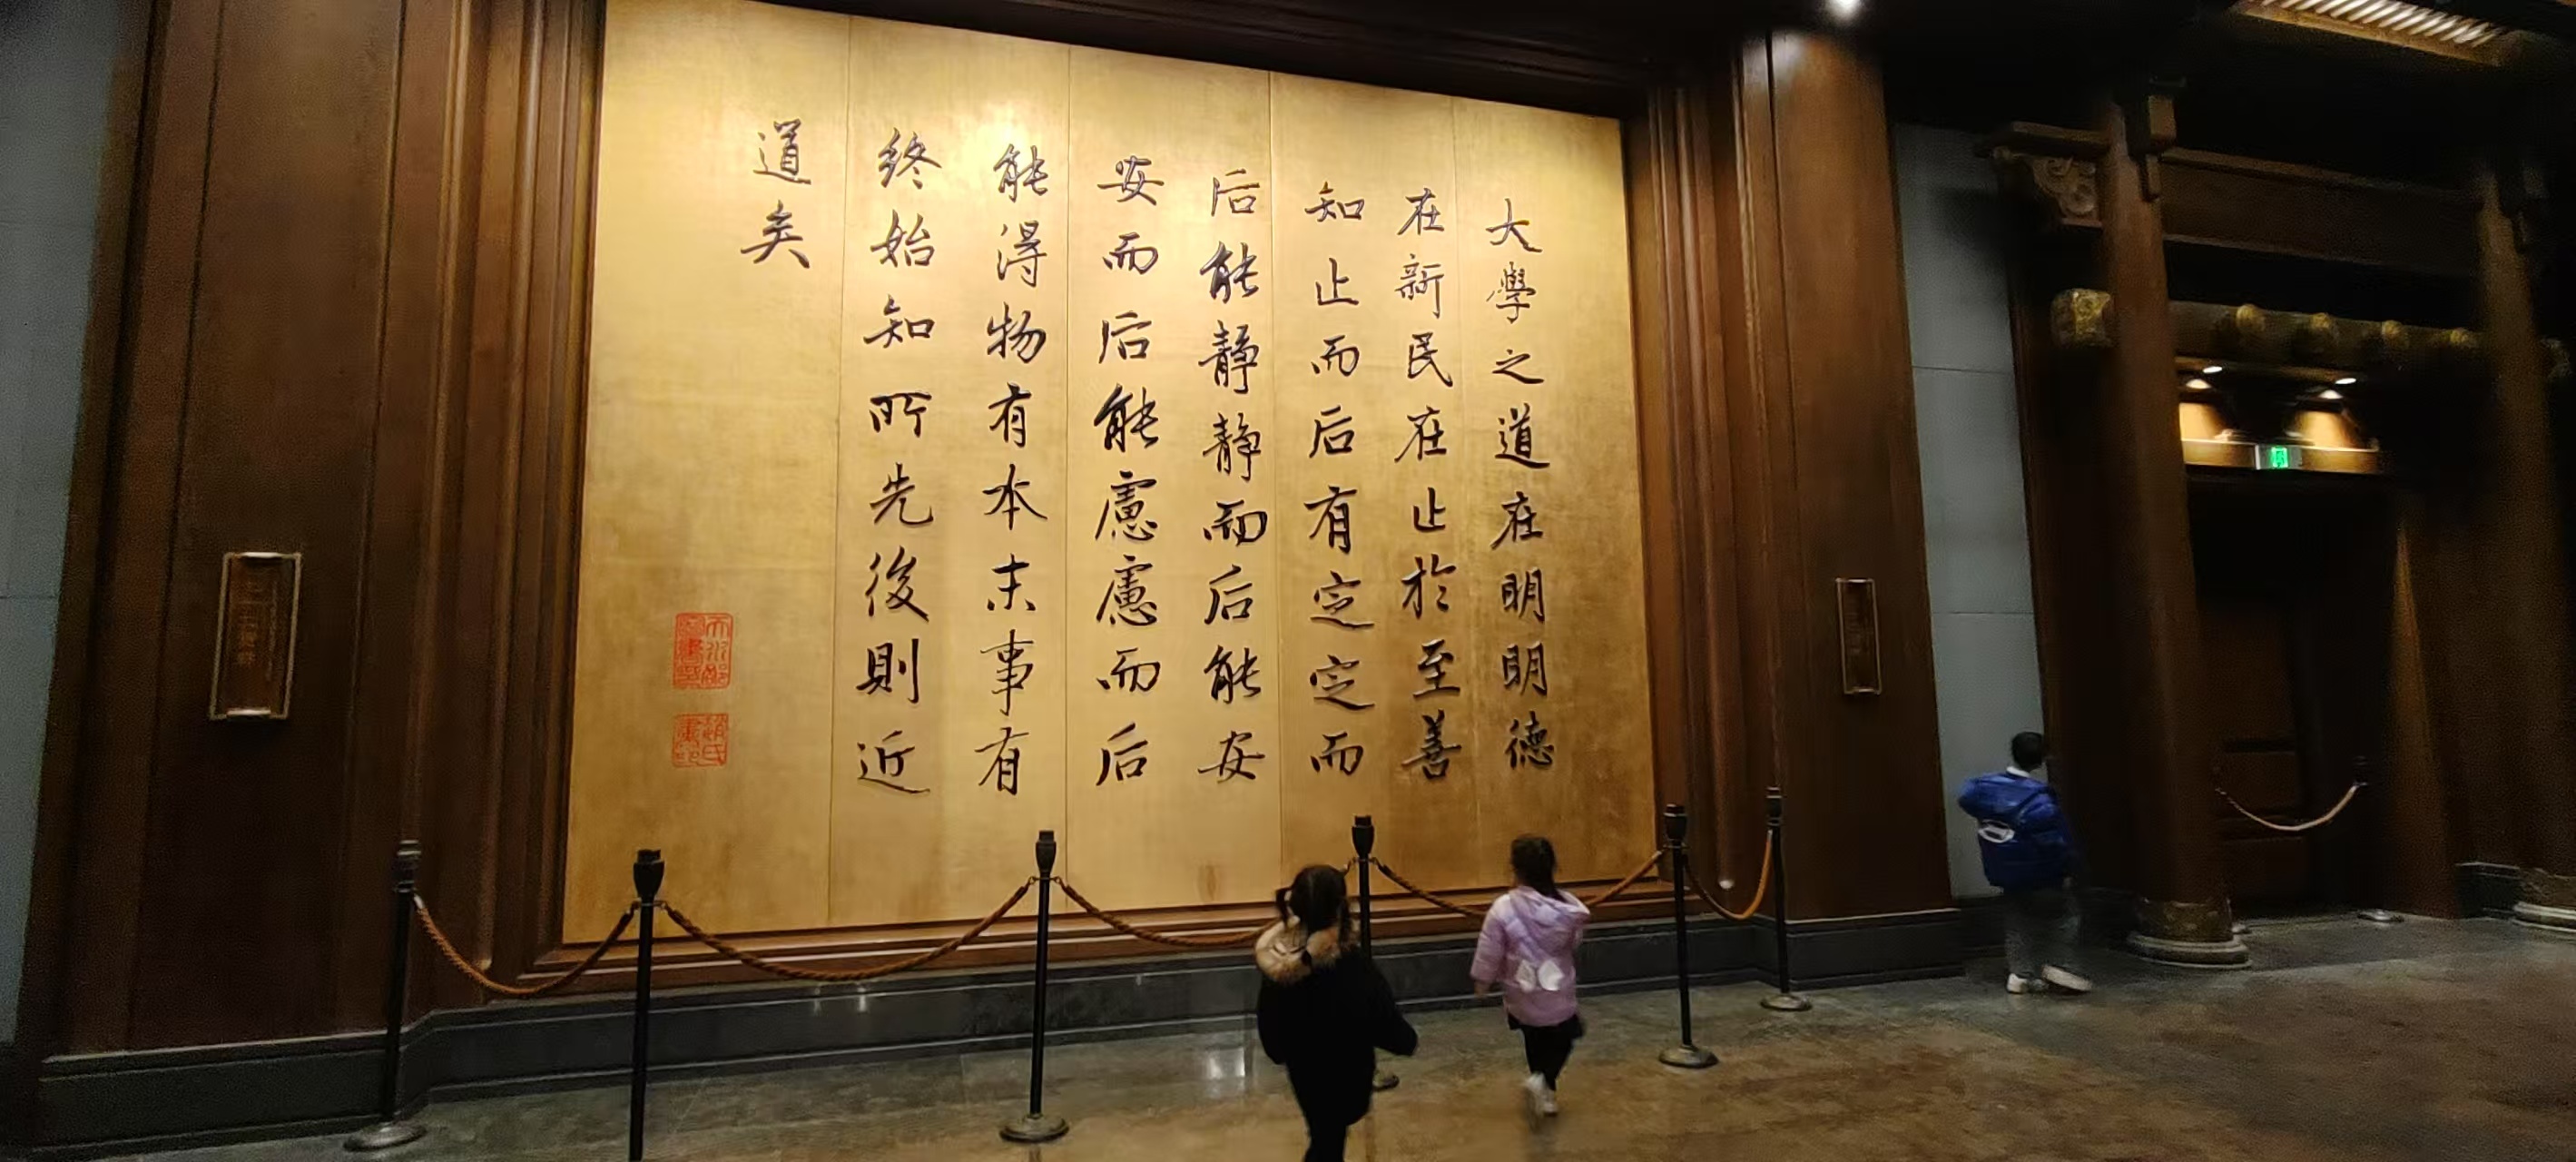 大學之道在明明德
在新民在止於至善
知止而后有定定而
后能靜靜而后能安
安而后能慮慮而后
能得物有本末事有
終始知所先後則近
道矣
趙氏書印